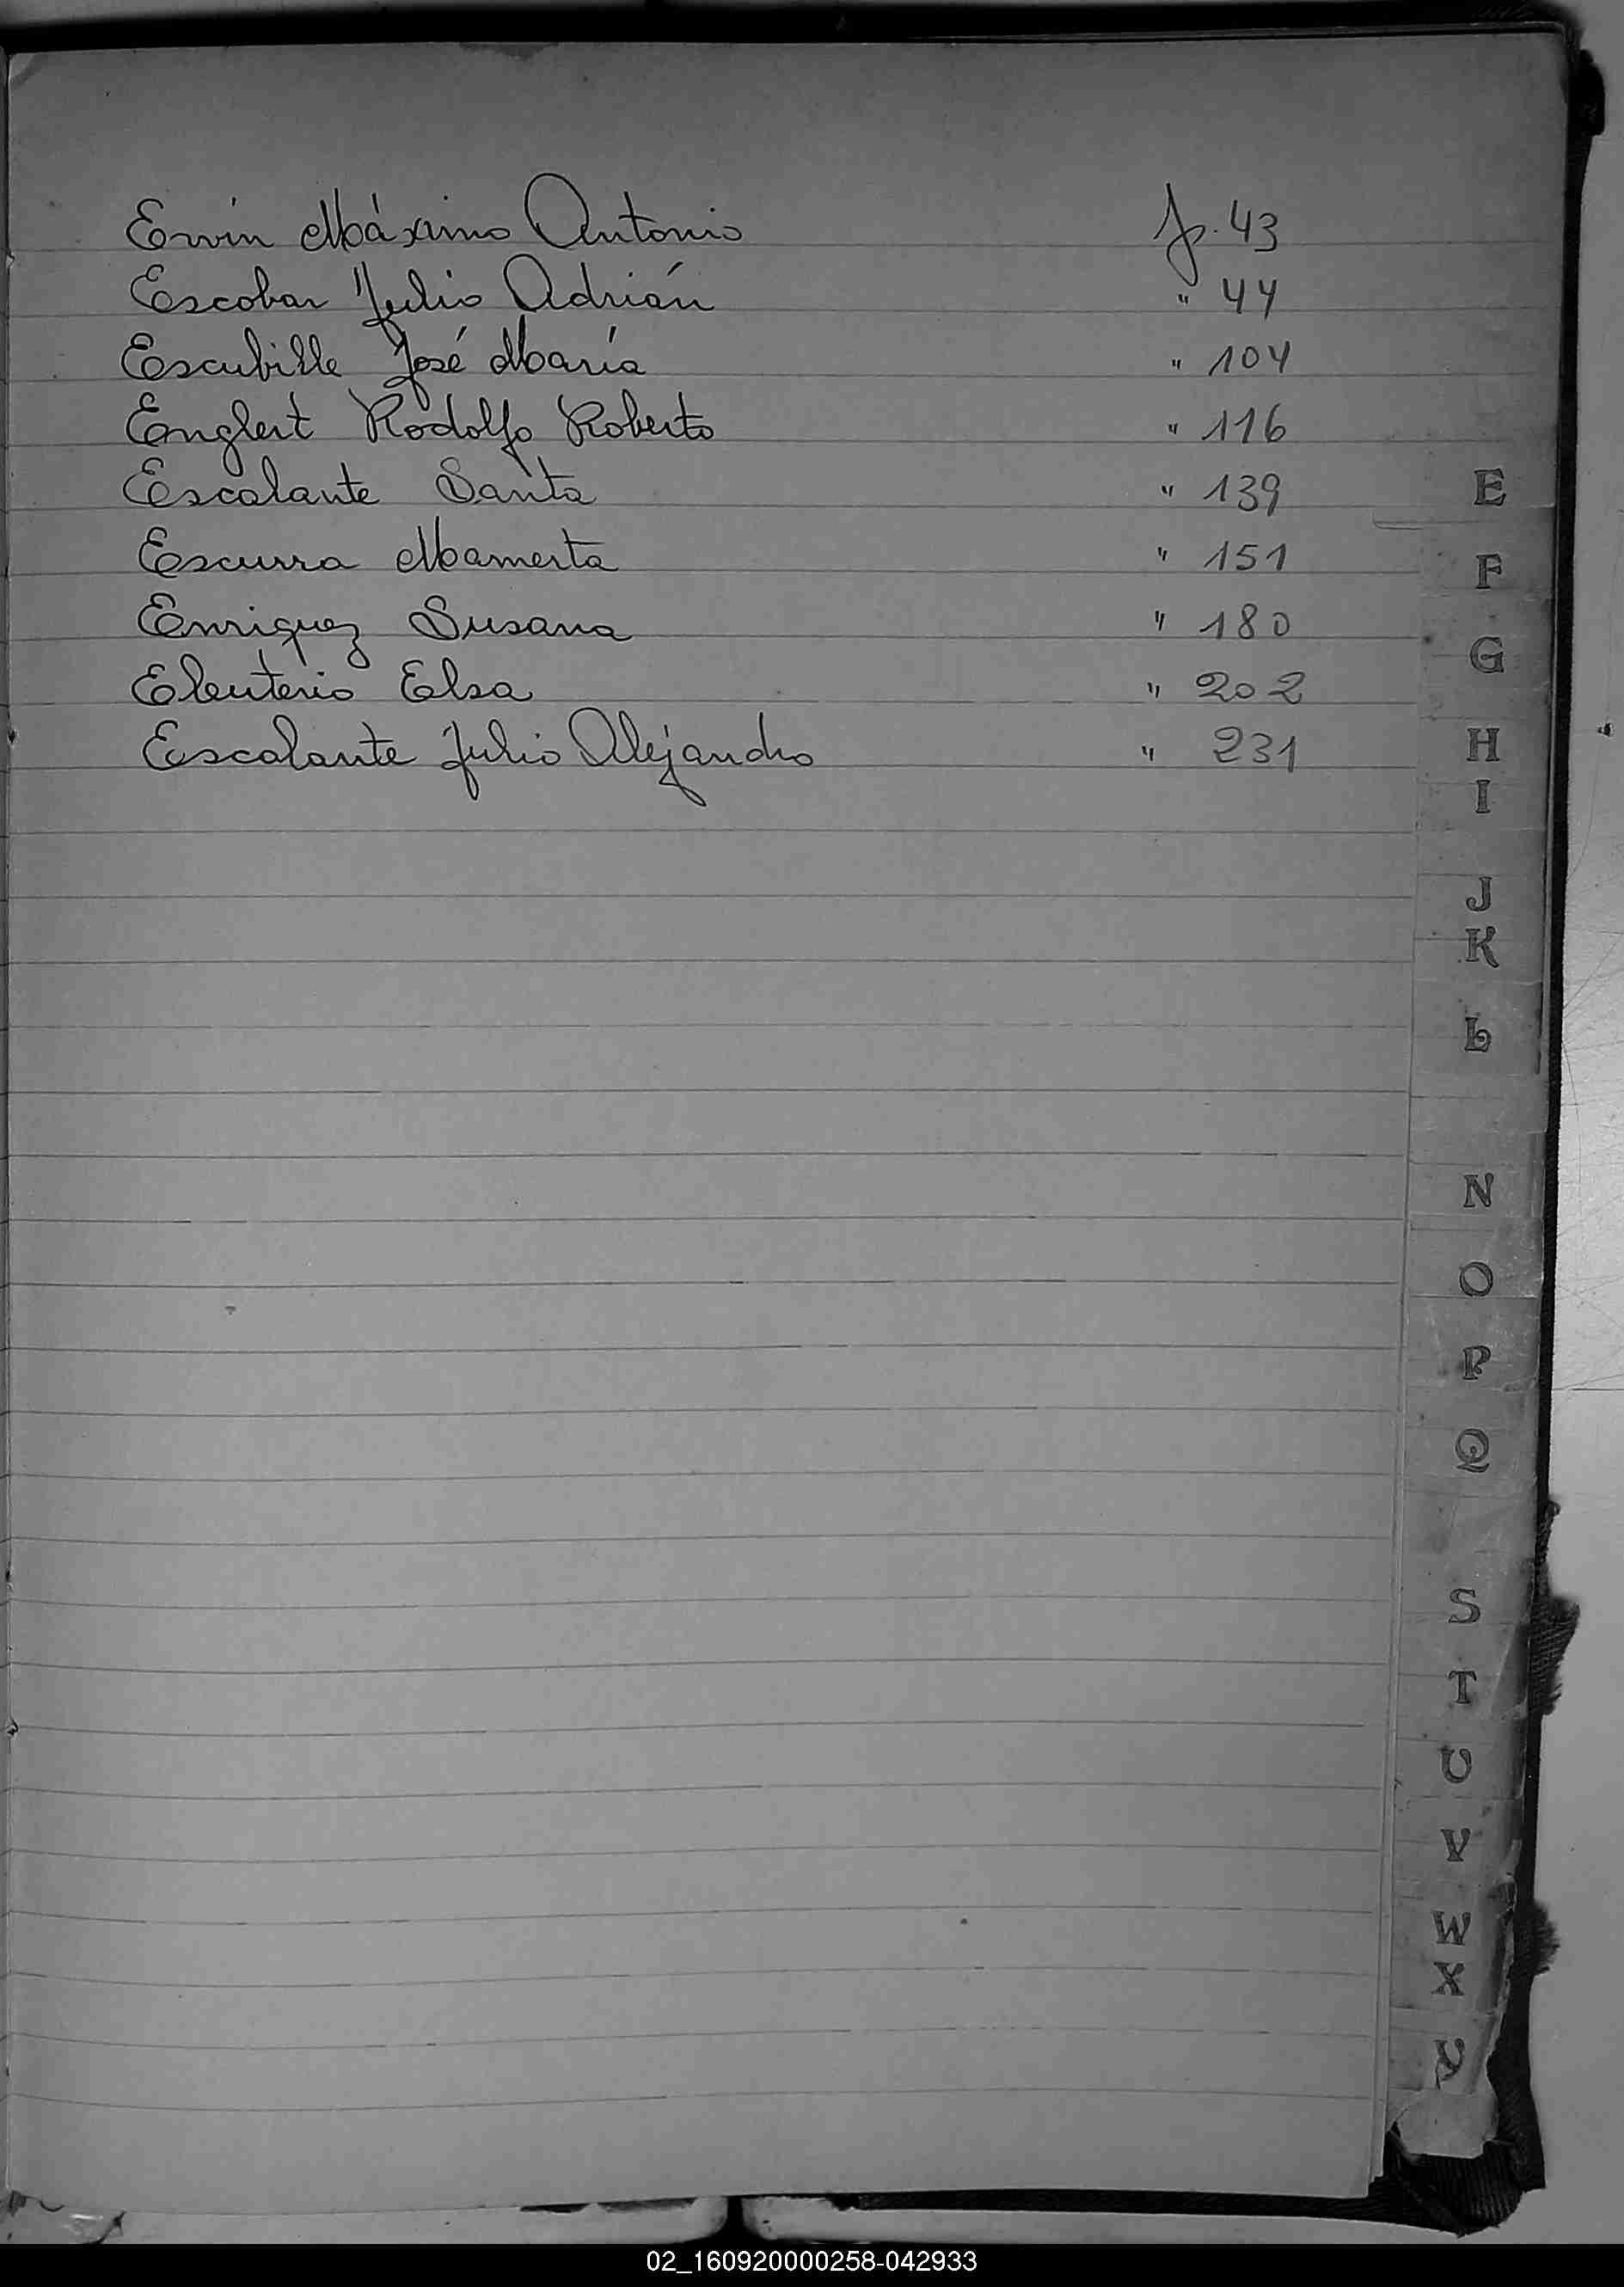 Erwin Máximo Antonio f. 43
Escobar Julio Adrián " 44
Escubille José María " 104
Englert Rodolfo Roberto " 116
Escalante Santa " 139
Escurra Mamerta " 151
Enriquez Susana " 180
Eleuterio Elsa " 202
Escalante Julio Alejandro " 231
E
F
G
H
I
J
K
L
N
O
P
Q
S
T
U
V
W
X
Y
02_160920000258-042933